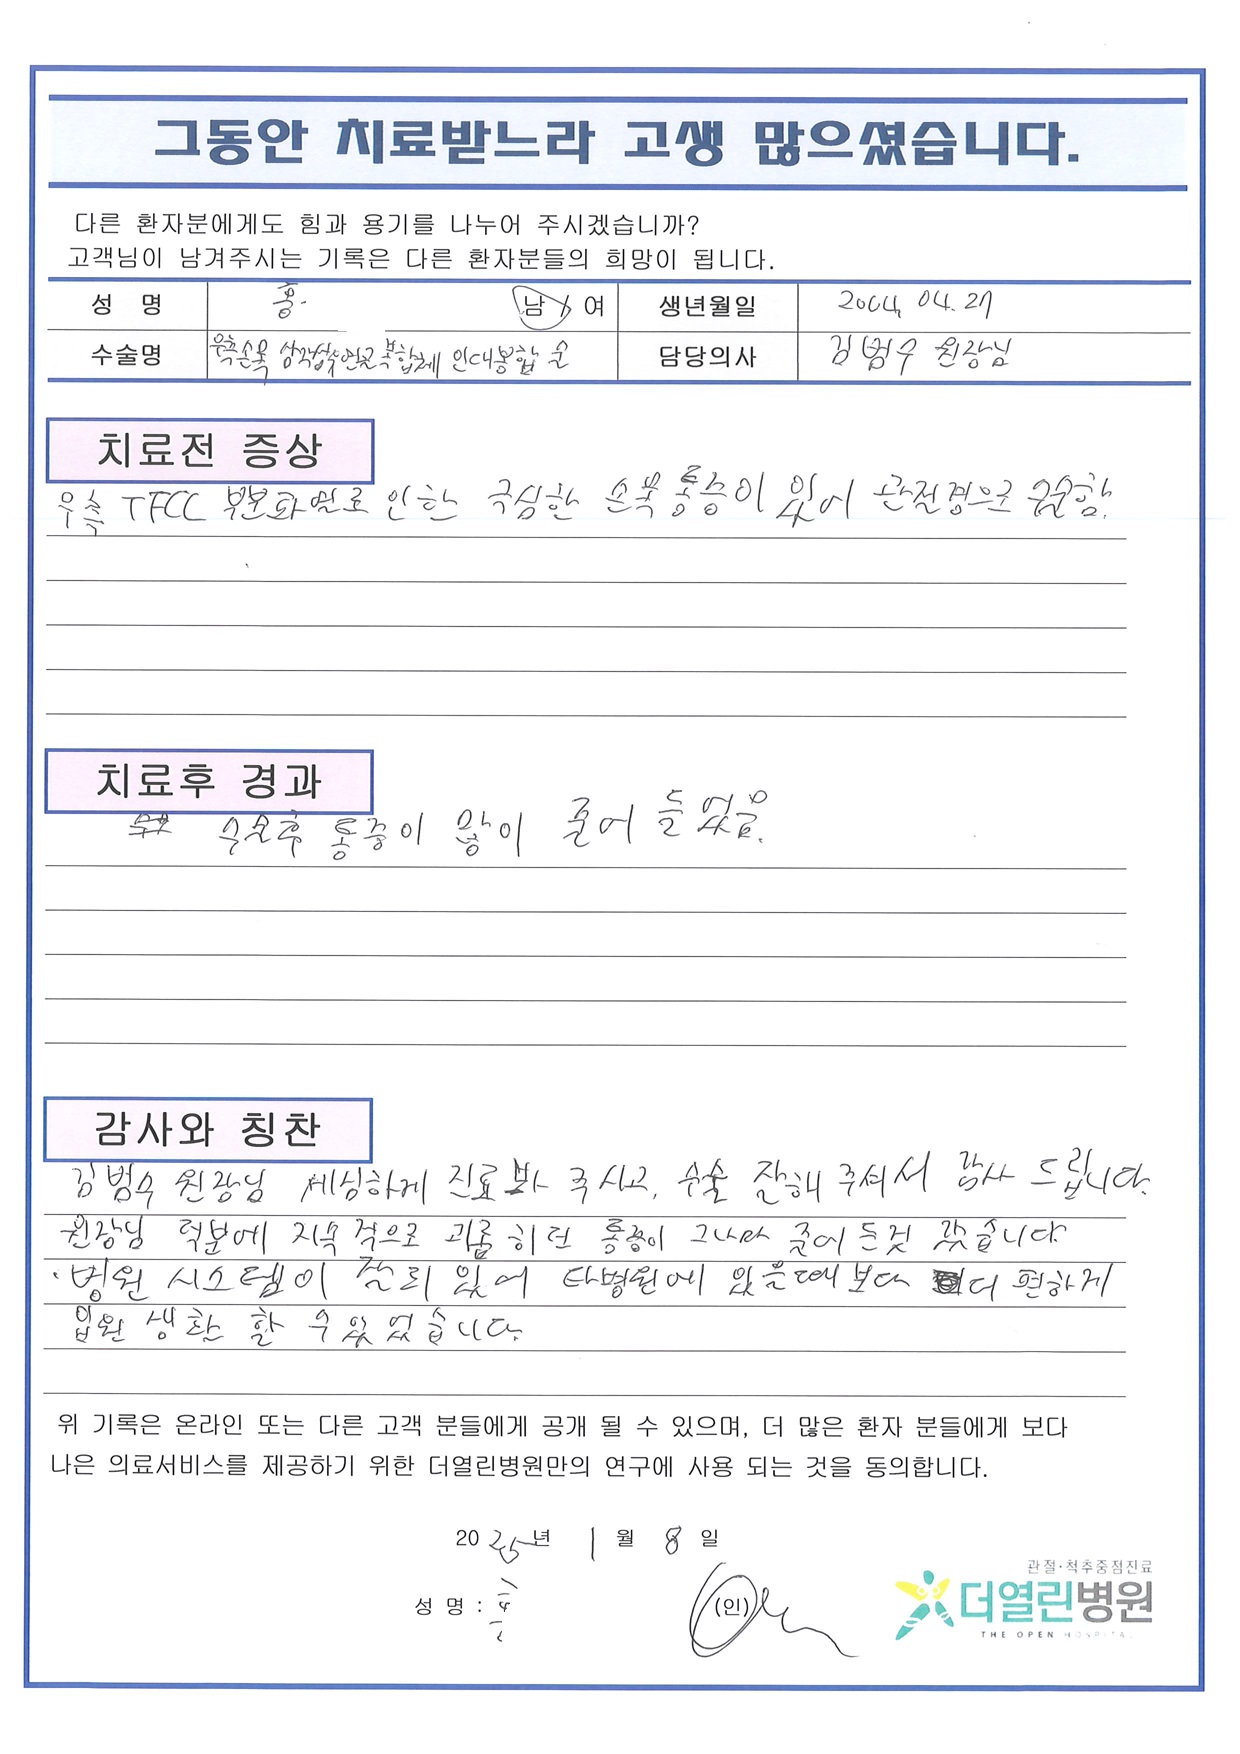 그동안 치료받느라 고생 많으셨습니다.
다른 환자분에게도 힘과 용기를 나누어 주시겠습니까?
고객님이 남겨주시는 기록은 다른 환자분들의 희망이 됩니다.
성 명 홍 남 / 여 생년월일 2004. 04. 27
수술명 우측손목 삼각섬유연골복합체 인대봉합 술 담당의사 김범수 원장님
치료전 증상
우측 TFCC 부분파열로 인한 극심한 손목통증이 있어 관절경으로 수술함.
치료후 경과
수술후 통증이 많이 줄어 들었음.
감사와 칭찬
김범수 원장님 세심하게 진료봐 주시고, 수술 잘해 주셔서 감사 드립니다.
원장님 덕분에 지속적으로 괴롭히던 통증이 그나마 줄어든것 같습니다
병원 시스템이 잘되 있어 타병원에 있을때 보다 더 편하게
입원 생활 할 수 있었습니다.
위 기록은 온라인 또는 다른 고객 분들에게 공개 될 수 있으며, 더 많은 환자 분들에게 보다
나은 의료서비스를 제공하기 위한 더열린병원만의 연구에 사용 되는 것을 동의합니다.
2025년 1월 8일
성 명 : (인)
관절·척추중점진료
더열린병원
THE OPEN HOSPITAL